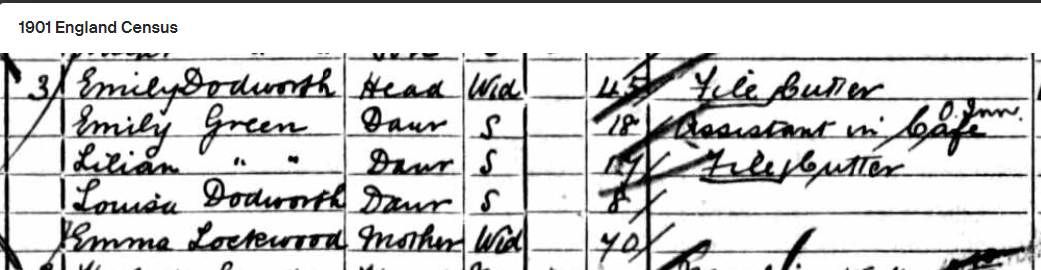 1901 England Census
3 Emily Dodworth Head Wid 45 File Cutter
Emily Green Daur S 18 Assistant in Café O. Inn.
Lilian " " Daur S 17 File Cutter
Louisa Dodworth Daur S 8
Emma Lockwood Mother Wid 70